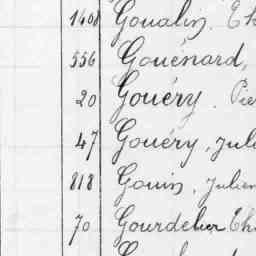 1408 Goualin. Th
556 Gouénard,
20 Gouéry. Pie
47 Gouéry, Juli
818 Gouin, Julien
70 Gourdelier Th